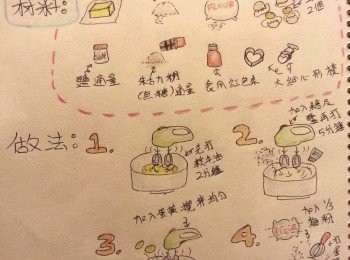 材料:
FLOUR
2個
鹽適量
朱古力粉
(無糖)適量
食用紅色素
大細心形模
做法:
1.
先打
軟牛油
2分鐘
2.
加入糖及
鹽再打
5分鐘
3.
加入蛋黃攪
4.
加入1/3
麵粉